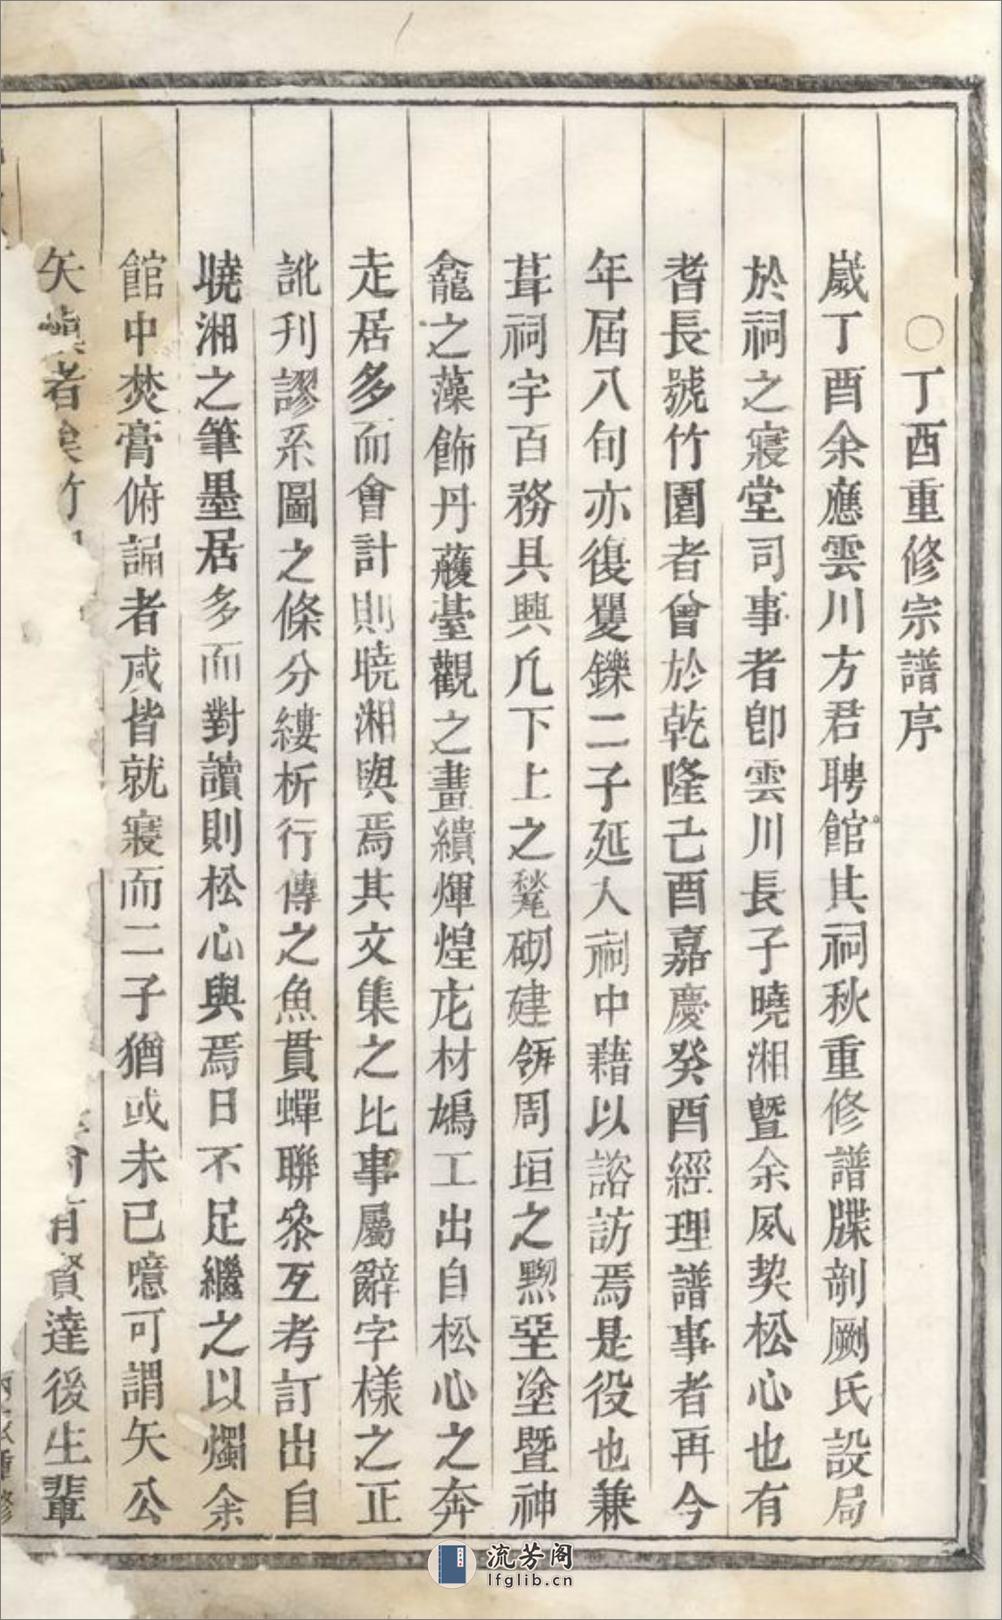 ○丁酉重修宗譜序
嵗丁酉余應雲川方君聘館其祠秋重修譜牒剞劂氏設局
於祠之寢堂司事者卽雲川長子曉湘曁余夙契松心也有
耆長號竹園者曾於乾隆己酉嘉慶癸酉經理譜事者再今
年屆八旬亦復矍鑠二子延入祠中藉以諮訪焉是役也兼
葺祠宇百務具興凢下上之甃砌建瓴周垣之黝堊塗曁神
龕之藻飾丹雘臺觀之畫繢煇煌庀材鳩工出自松心之奔
走居多而會計則曉湘與焉其文集之比事屬辭字樣之正
訛刋謬系圖之條分縷析行傳之魚貫蟬聯叅互考訂出自
曉湘之筆墨居多而對讀則松心與焉日不足繼之以燭余
館中焚膏俯誦者咸皆就寢而二子猶或未已噫可謂矢公
矢愼者矣竹
有賢達後生輩
重修
流芳阁
lfglib.cn